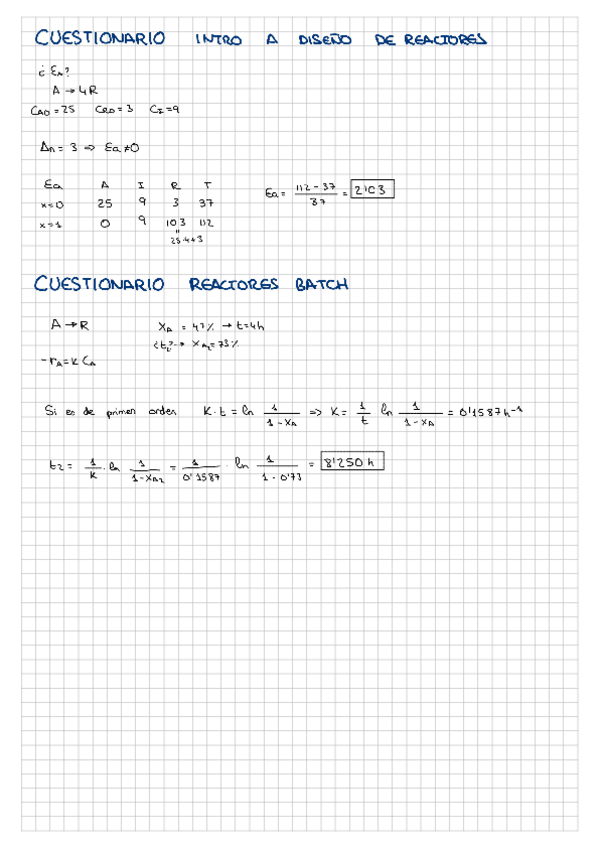 CUESTIONARIO INTRO A DISEÑO DE REACTORES
¿ Ea?
A → 4R
CAO = 25 CRO = 3 CI = 9
Δn = 3 ⇒ Ea ≠ 0
Ea A I R T
x=0 25 9 3 37
x=1 0 9 103 112
"
25·4+3
Ea = (112 - 37) / 37 = 2'03
CUESTIONARIO REACTORES BATCH
A → R XA = 47% → t=4h
¿t2? → XA2 = 73%
-rA = K CA
Si es de primer orden K·t = ln 1/(1-XA) ⇒ K = 1/t ln 1/(1-XA) = 0'1587 h-1
t2 = 1/K · ln 1/(1-XA2) = 1/0'1587 · ln 1/(1-0'73) = 8'250 h